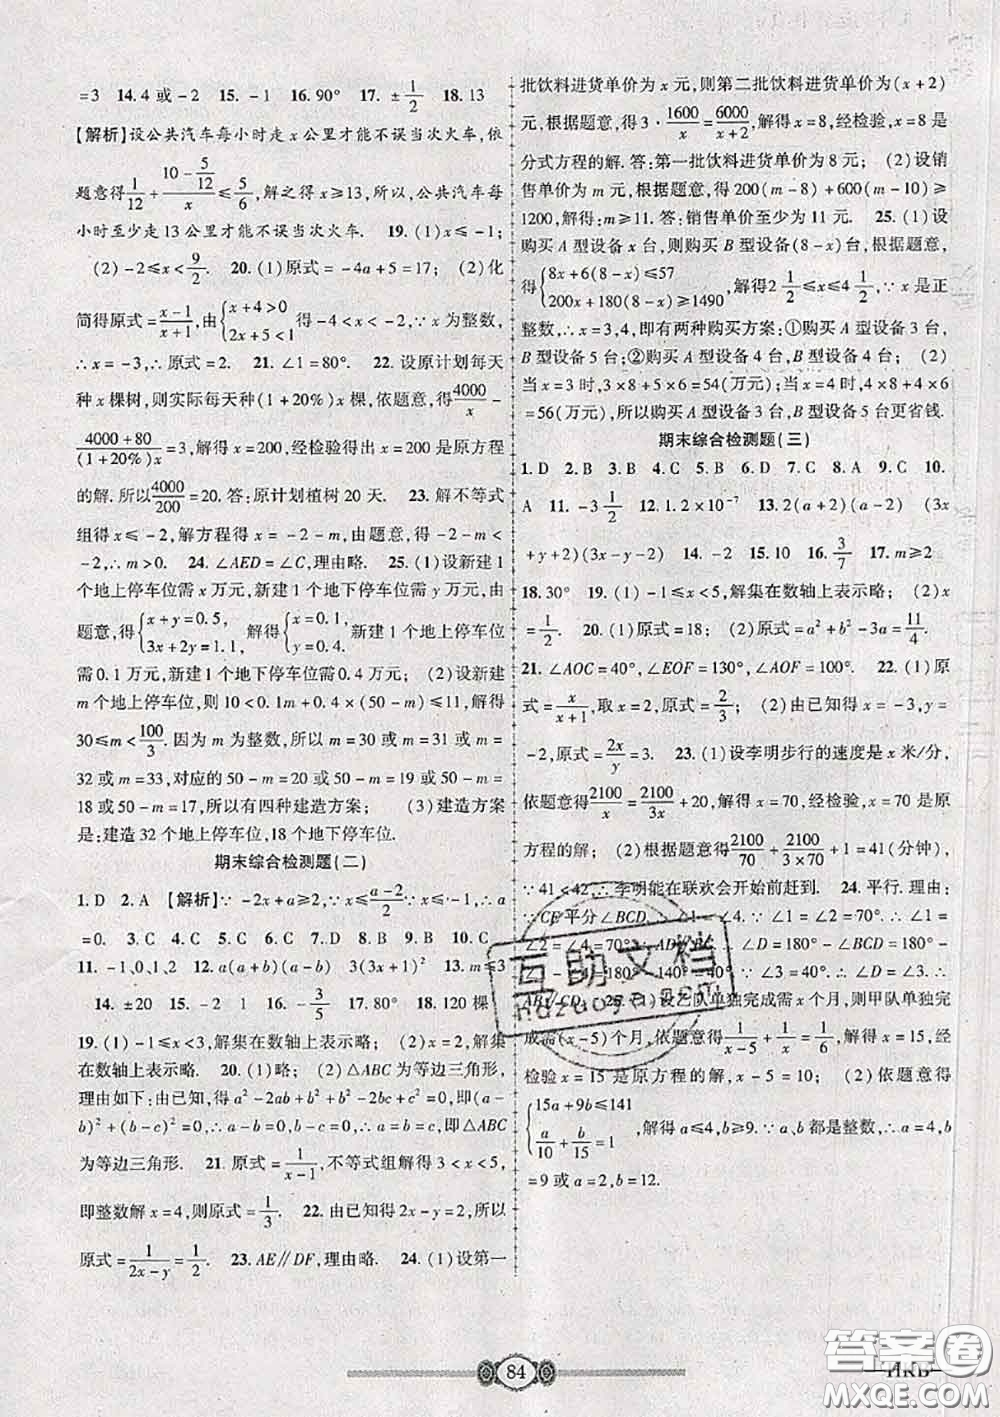 =3 14.4 或 -2 15. -1 16.90° 17. ±1/2 18.13
【解析】设公共汽车每小时走 x 公里才能不误当次火车,依
题意得 1/12 + (10 - 5/12)/x ≤ 5/6, 解之得 x≥13, 所以,公共汽车每
小时至少走 13 公里才能不误当次火车. 19.(1)x≤-1;
(2)-2≤x<9/2. 20.(1)原式=-4a+5=17; (2)化
简得原式=(x-1)/(x+1),由{x+4>0 2x+5<1 得-4<x<-2,∵x 为整数,
∴x=-3,∴原式=2. 21.∠1=80°. 22.设原计划每天
种 x 棵树,则实际每天种(1+20%)x 棵,依题意,得 4000/x -
(4000+80)/((1+20%)x) =3,解得 x=200,经检验得出 x=200 是原方程
的解.所以 4000/200 =20.答:原计划植树 20 天. 23.解不等式
组得 x≤-2,解方程得 x=-2-m,由题意,得-2-m<
-2,∴m>0. 24.∠AED=∠C,理由略. 25.(1)设新建 1
个地上停车位需 x 万元,新建 1 个地下停车位需 y 万元,由
题意,得{x+y=0.5, 3x+2y=1.1, 解得{x=0.1, y=0.4. 新建 1 个地上停车位
需 0.1 万元,新建 1 个地下停车位需0.4 万元; (2)设新建
m个地上停车位,则 10<0.1m+0.4×(50-m)≤11,解得
30≤m<100/3. 因为 m 为整数,所以 m=30 或 m=31 或 m=
32 或 m=33,对应的 50-m=20 或 50-m=19 或 50-m=
18 或 50-m=17,所以有四种建造方案; (3)建造方案
是:建造 32 个地上停车位,18 个地下停车位.
期末综合检测题(二)
1.D 2.A 【解析】∵-2x+a≥2,∴x≤(a-2)/2 ∵x≤-1,∴a
=0. 3.C 4.C 5.C 6.C 7.D 8.B 9.B 10.C
11.-1、0、1、2 12.a(a+b)(a-b) 3(3x+1)² 13.m≤3
14.±20 15.-2 1 16.-3/5 17.80° 18.120 棵
19.(1)-1≤x<3,解集在数轴上表示略; (2)x=2,解集
在数轴上表示略. 20.(1)略; (2)△ABC 为等边三角形,
理由如下:由已知,得 a²-2ab+b²+b²-2bc+c²=0,即(a-
b)²+(b-c)²=0,∴a-b=0,b-c=0,∴a=b=c,即△ABC
为等边三角形. 21.原式=1/(x-1),不等式组解得 3<x<5,
即整数解 x=4,则原式=1/3. 22.由已知得 2x-y=2,所以
原式=1/(2x-y)=1/2. 23.AE∥DF,理由略. 24.(1)设第一
批饮料进货单价为 x 元,则第二批饮料进货单价为(x+2)
元,根据题意,得 3·1600/x=6000/(x+2),解得 x=8,经检验,x=8 是
分式方程的解.答:第一批饮料进货单价为 8 元; (2)设销
售单价为 m 元,根据题意,得 200(m-8)+600(m-10)≥
1200,解得:m≥11.答:销售单价至少为 11 元. 25.(1)设
购买 A 型设备 x 台,则购买 B 型设备(8-x)台,根据题意,
得{8x+6(8-x)≤57 200x+180(8-x)≥1490, 解得2 1/2≤x≤4 1/2,∵x 是正
整数,∴x=3,4,即有两种购买方案:①购买 A 型设备 3 台,
B 型设备 5 台;②购买 A 型设备 4 台,B 型设备 4 台; (2)
当 x=3 时,3×8+5×6=54(万元);当 x=4 时,4×8+4×6
=56(万元),所以购买 A 型设备 3 台,B 型设备 5 台更省钱.
期末综合检测题(三)
1.D 2.B 3.B 4.C 5.B 6.D 7.C 8.A 9.C 10.
A 11.-3 1/2 12.1.2×10⁻⁷ 13.2(a+2)(a-2) (3x
+y+2)(3x-y-2) 14.-2 15.10 16.3/7 17.m≥2
18.30° 19.(1)-1≤x<5,解集在数轴上表示略; (2)x
=1/2. 20.(1)原式=18; (2)原式=a²+b²-3a=11/4.
21.∠AOC=40°,∠EOF=130°,∠AOF=100°. 22.(1)原
式=x/(x+1),取 x=2,原式=2/3; (2)由已知得 x=-3,y=
-2,原式=2x/y=3. 23.(1)设李明步行的速度是 x 米/分,
依题意得 2100/x=2100/3x+20,解得 x=70,经检验,x=70 是原
方程的解; (2)根据题意得 2100/70+2100/(3×70)+1=41(分钟),
∵41<42,∴李明能在联欢会开始前赶到. 24.平行.理由:
∵CE 平分∠BCD,∴∠1=∠4,∵∠1=∠2=70°,∴∠1=
∠2=∠4=70°,∴AD∥BC,∴∠D=180°-∠BCD=180°-
∠1-∠4=40°,∵∠3=40°,
∴AB∥CD. 25.(1)设乙队单独完成需 x 个月,则甲队单独完
成需(x-5)个月,依题意得 1/(x-5)+1/x=1/6,解得 x=15,经
检验 x=15 是原方程的解,x-5=10; (2)依题意得
{15a+9b≤141 a/10+b/15=1 ,解得 a≤4,b≥9.∵a、b 都是整数,∴a=4,b
=9 或 a=2,b=12.
互助文档
hdzuoye.com
84
HKB
答案圈
MXQE.COM